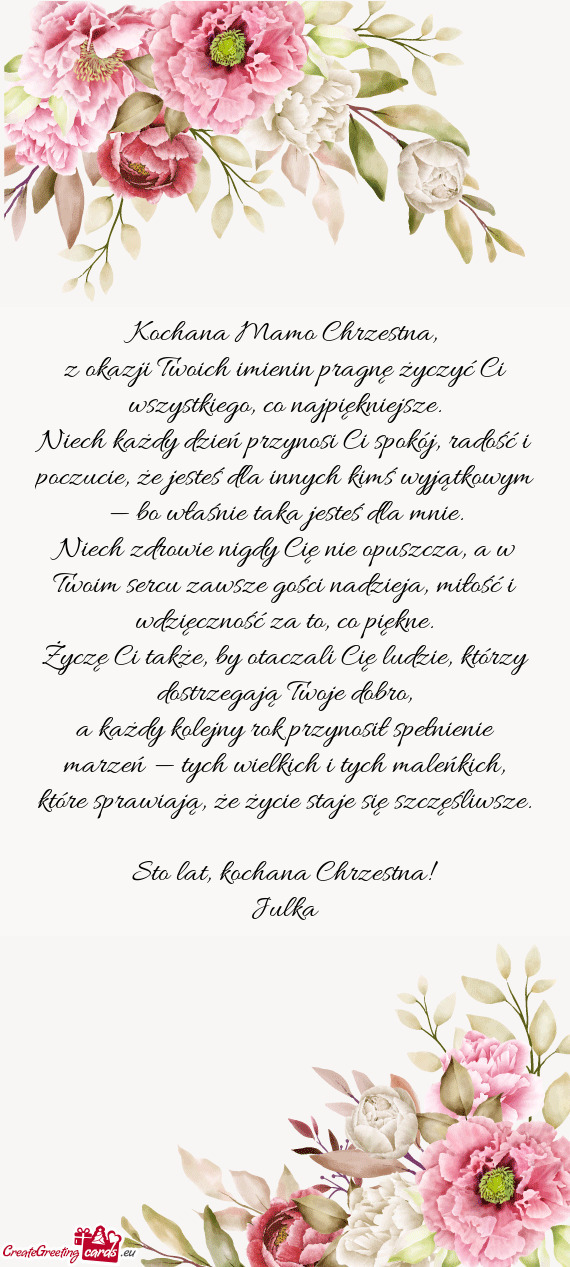 Kochana Mamo Chrzestna,
z okazji Twoich imienin pragnę życzyć Ci
wszystkiego, co najpiękniejsze.
Niech każdy dzień przynosi Ci spokój, radość i
poczucie, że jesteś dla innych kimś wyjątkowym
– bo właśnie taka jesteś dla mnie.
Niech zdrowie nigdy Cię nie opuszcza, a w
Twoim sercu zawsze gości nadzieja, miłość i
wdzięczność za to, co piękne.
Życzę Ci także, by otaczali Cię ludzie, którzy
dostrzegają Twoje dobro,
a każdy kolejny rok przynosił spełnienie
marzeń – tych wielkich i tych maleńkich,
które sprawiają, że życie staje się szczęśliwsze.
Sto lat, kochana Chrzestna!
Julka
CreateGreeting cards .eu